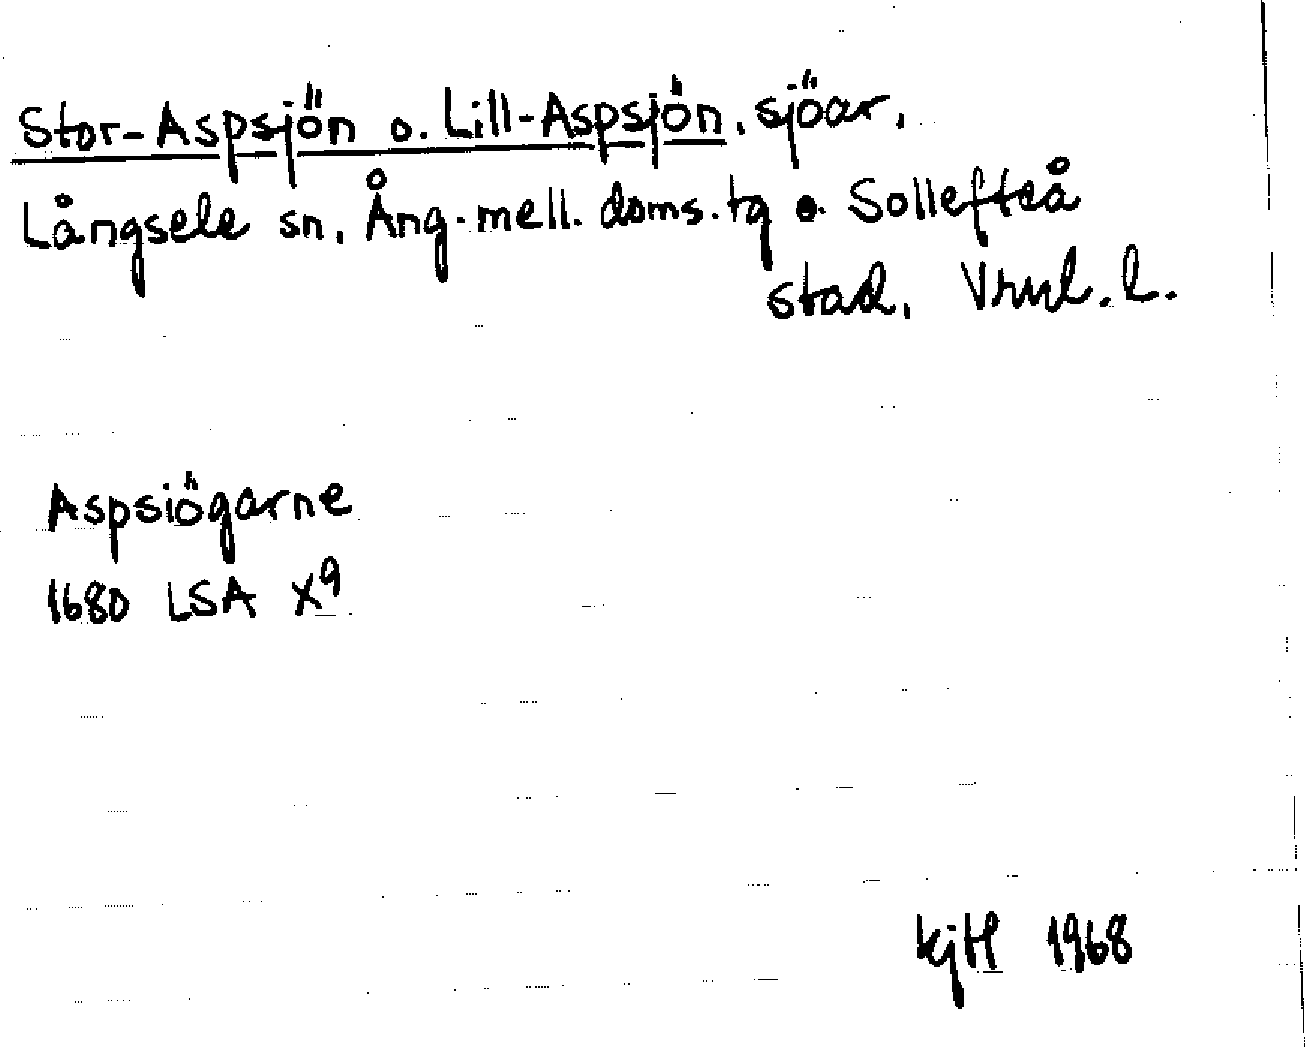 Stor-Aspsjön o. Lill-Aspsjön, sjöar,
Långsele sn, Ång. mell. doms. tg o. Sollefteå
stad, Vrnl. l.
Aspsiögarne
1680 LSA X9
kjH 1968